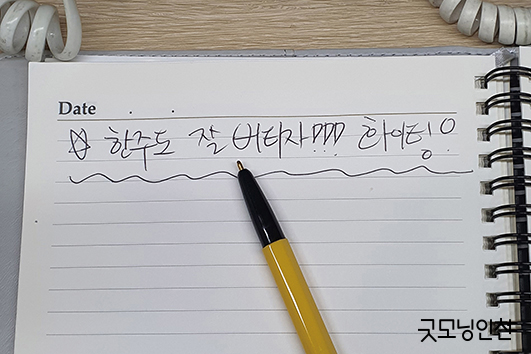 Date . . .
☆ 한주도 잘 버티자!!! 화이팅!!
굿모닝인천